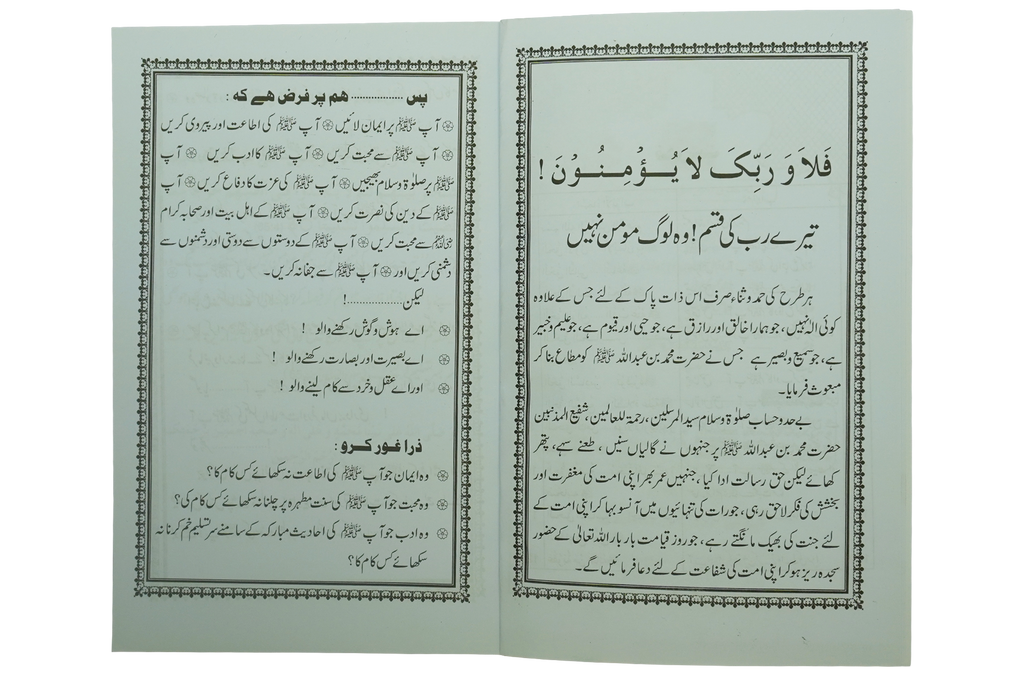 فَلاَ وَ رَبِّكَ لاَ يُـؤْمِـنُـوْنَ !
تیرے رب کی قسم! وہ لوگ مومن نہیں
ہر طرح کی حمد و ثناء صرف اس ذات پاک کے لئے جس کے علاوہ
کوئی الٰہ نہیں، جو ہمارا خالق اور رازق ہے، جو حیی اور قیوم ہے، جو علیم و خبیر
ہے، جو سمیع و بصیر ہے جس نے حضرت محمد بن عبداللہ ﷺ کو مطاع بنا کر
مبعوث فرمایا۔
بے حد و حساب صلوٰۃ و سلام سید المرسلین، رحمۃ للعالمین، شفیع المذنبین
حضرت محمد بن عبداللہ ﷺ پر جنہوں نے گالیاں سنیں، طعنے سہے، پتھر
کھائے لیکن حق رسالت ادا کیا، جنہیں عمر بھر اپنی امت کی مغفرت اور
بخشش کی فکر لاحق رہی، جو رات کی تنہائیوں میں آنسو بہا کر اپنی امت کے
لئے جنت کی بھیک مانگتے رہے، جو روز قیامت بار بار اللہ تعالیٰ کے حضور
سجدہ ریز ہو کر اپنی امت کی شفاعت کے لئے دعا فرمائیں گے۔
پس ................ ھم پر فرض ھے کہ :
آپ ﷺ پر ایمان لائیں آپ ﷺ کی اطاعت اور پیروی کریں
آپ ﷺ سے محبت کریں آپ ﷺ کا ادب کریں آپ
ﷺ پر صلوٰۃ و سلام بھیجیں آپ ﷺ کی عزت کا دفاع کریں آپ
ﷺ کے دین کی نصرت کریں آپ ﷺ کے اھل بیت اور صحابہ کرام
رضی اللہ عنہم سے محبت کریں آپ ﷺ کے دوستوں سے دوستی اور دشمنوں سے
دشمنی کریں اور آپ ﷺ سے جفا نہ کریں۔
لیکن ................!
اے ہوش و گوش رکھنے والو !
اے بصیرت اور بصارت رکھنے والو !
اور اے عقل و خرد سے کام لینے والو !
ذرا غور کرو :
وہ ایمان جو آپ ﷺ کی اطاعت نہ سکھائے کس کام کا؟
وہ محبت جو آپ ﷺ کی سنت مطہرہ پر چلنا نہ سکھائے کس کام کی؟
وہ ادب جو آپ ﷺ کی احادیث مبارکہ کے سامنے سر تسلیم خم کرنا نہ
سکھائے کس کام کا؟